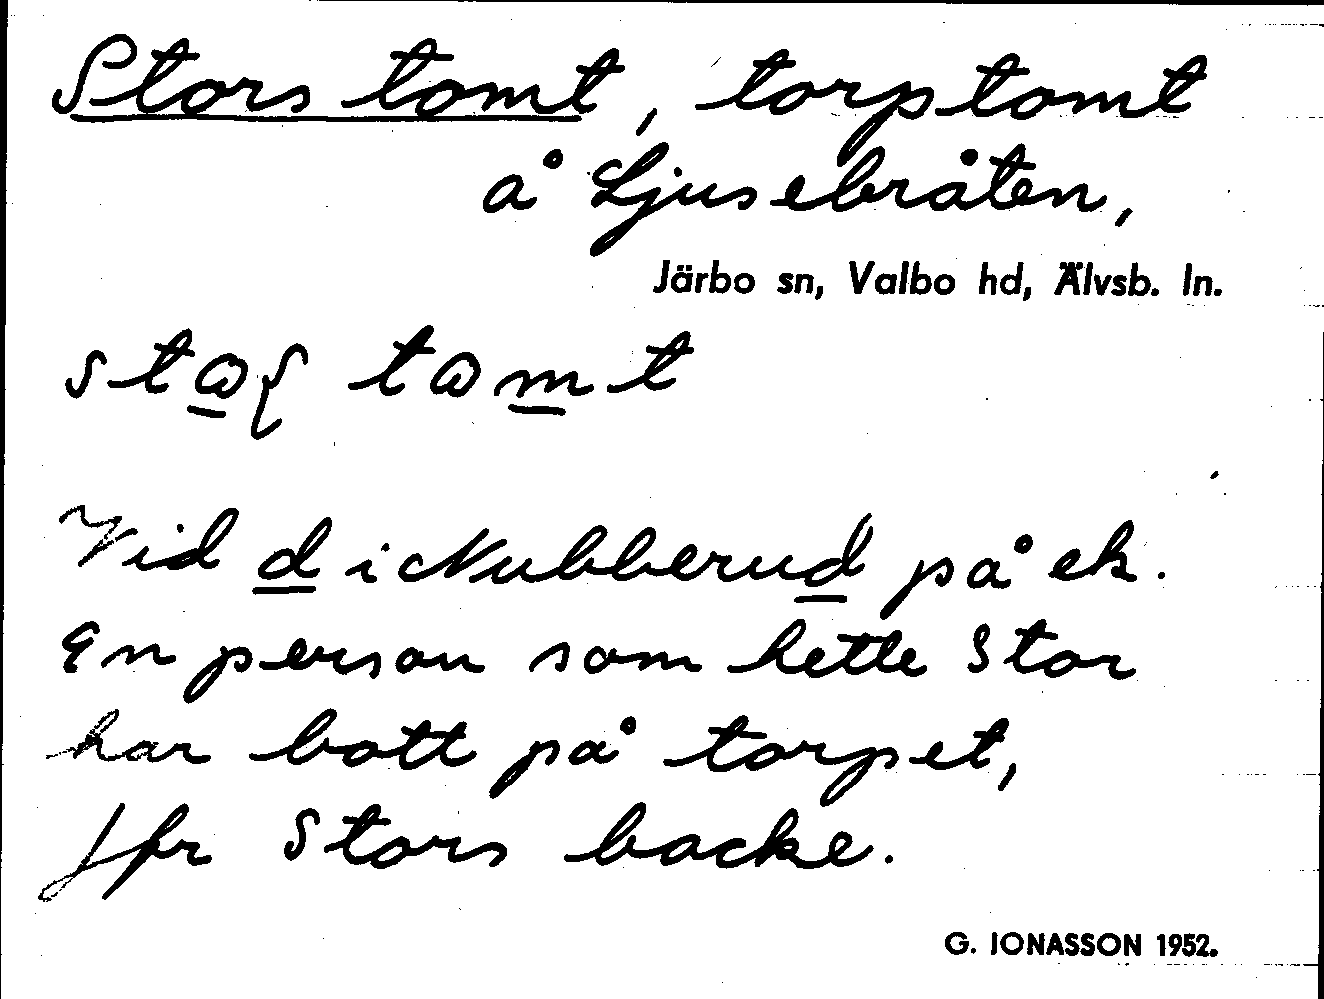 Stors tomt, torptomt
å Ljusebråten,
Järbo sn, Valbo hd, Älvsb. ln.
Vid d i c Nubberud på ek.
En person som hette Stor
har bott på torpet,
Jfr Stors backe.
G. JONASSON 1952.